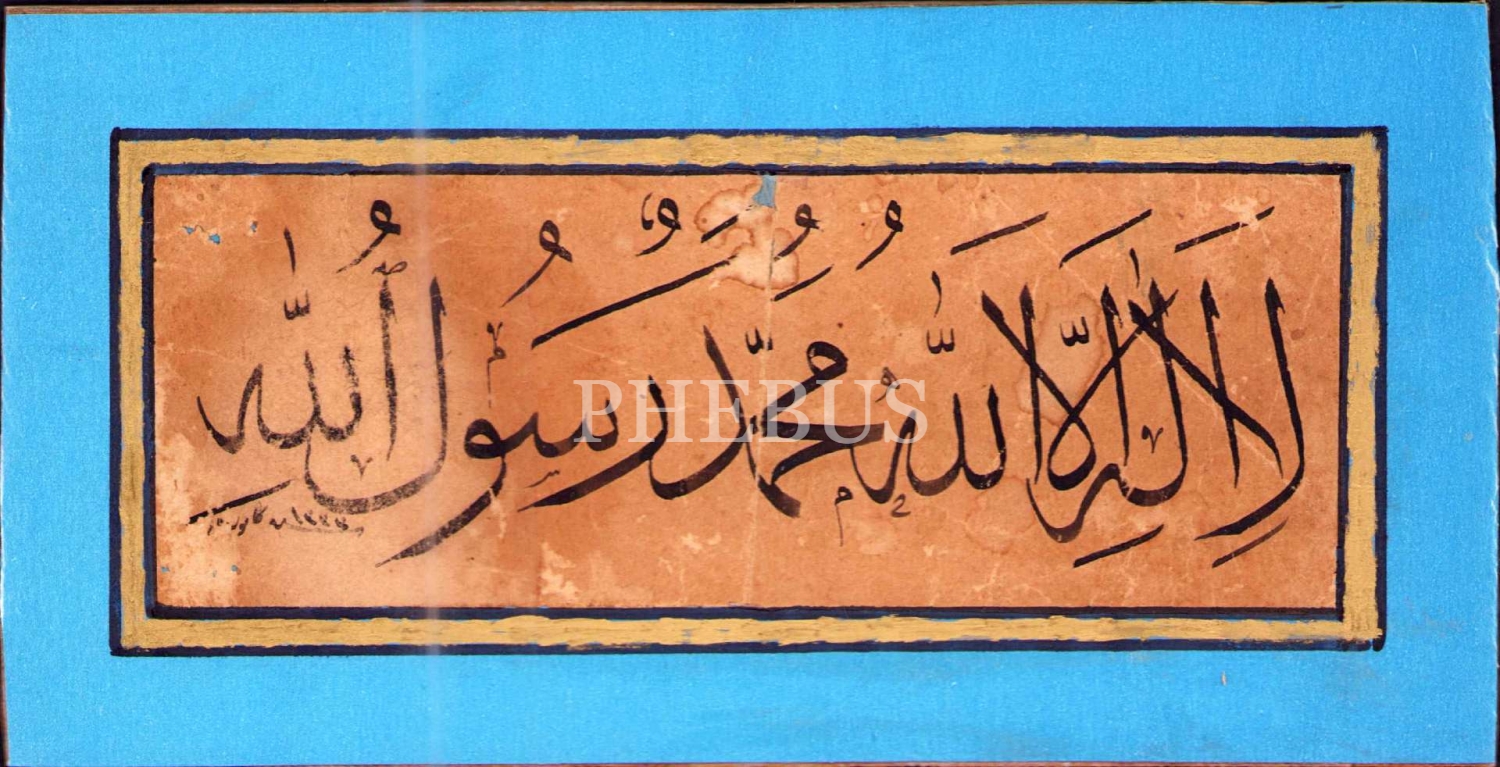 لَا إِلٰهَ إِلَّا اللّٰهُ مُحَمَّدٌ رَسُولُ اللّٰهِ
PHEBUS